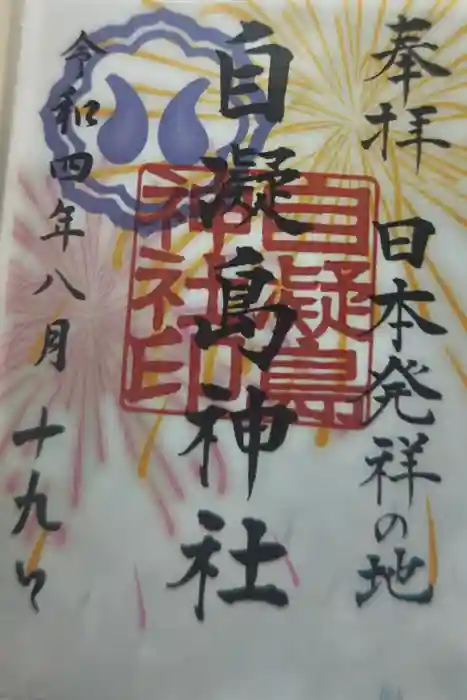 奉拝
日本発祥の地
自凝島神社
自凝島
神社印
令和四年八月十九日